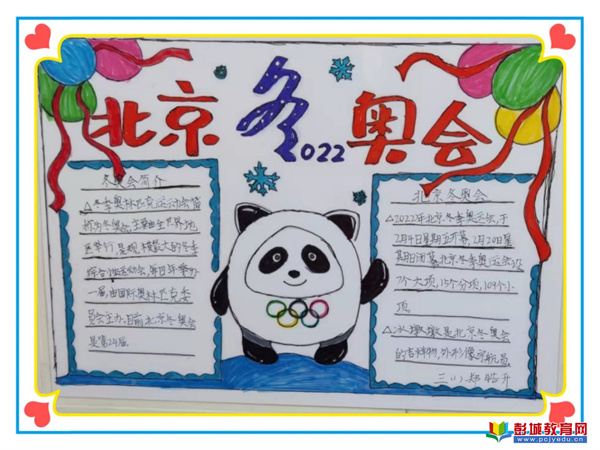 北京冬奥会
2022
冬奥会简介
△冬季奥林匹克运动会简
称为冬奥会,主要由全世界地
区举行,是规模最大的冬季
综合性运动会,每四年举办
一届,由国际奥林匹克委
员会主办,目前北京冬奥会
是第24届
北京冬奥会
△2022年北京冬季奥运会,于
2月4日星期五开幕,2月20日星
期日闭幕,北京冬季奥运会设
7个大项,15个分项,109个小
项
△冰墩墩是北京冬奥会
的吉祥物,外形像宇航员
三(1)
彭城教育网
www.pcjyedu.cn